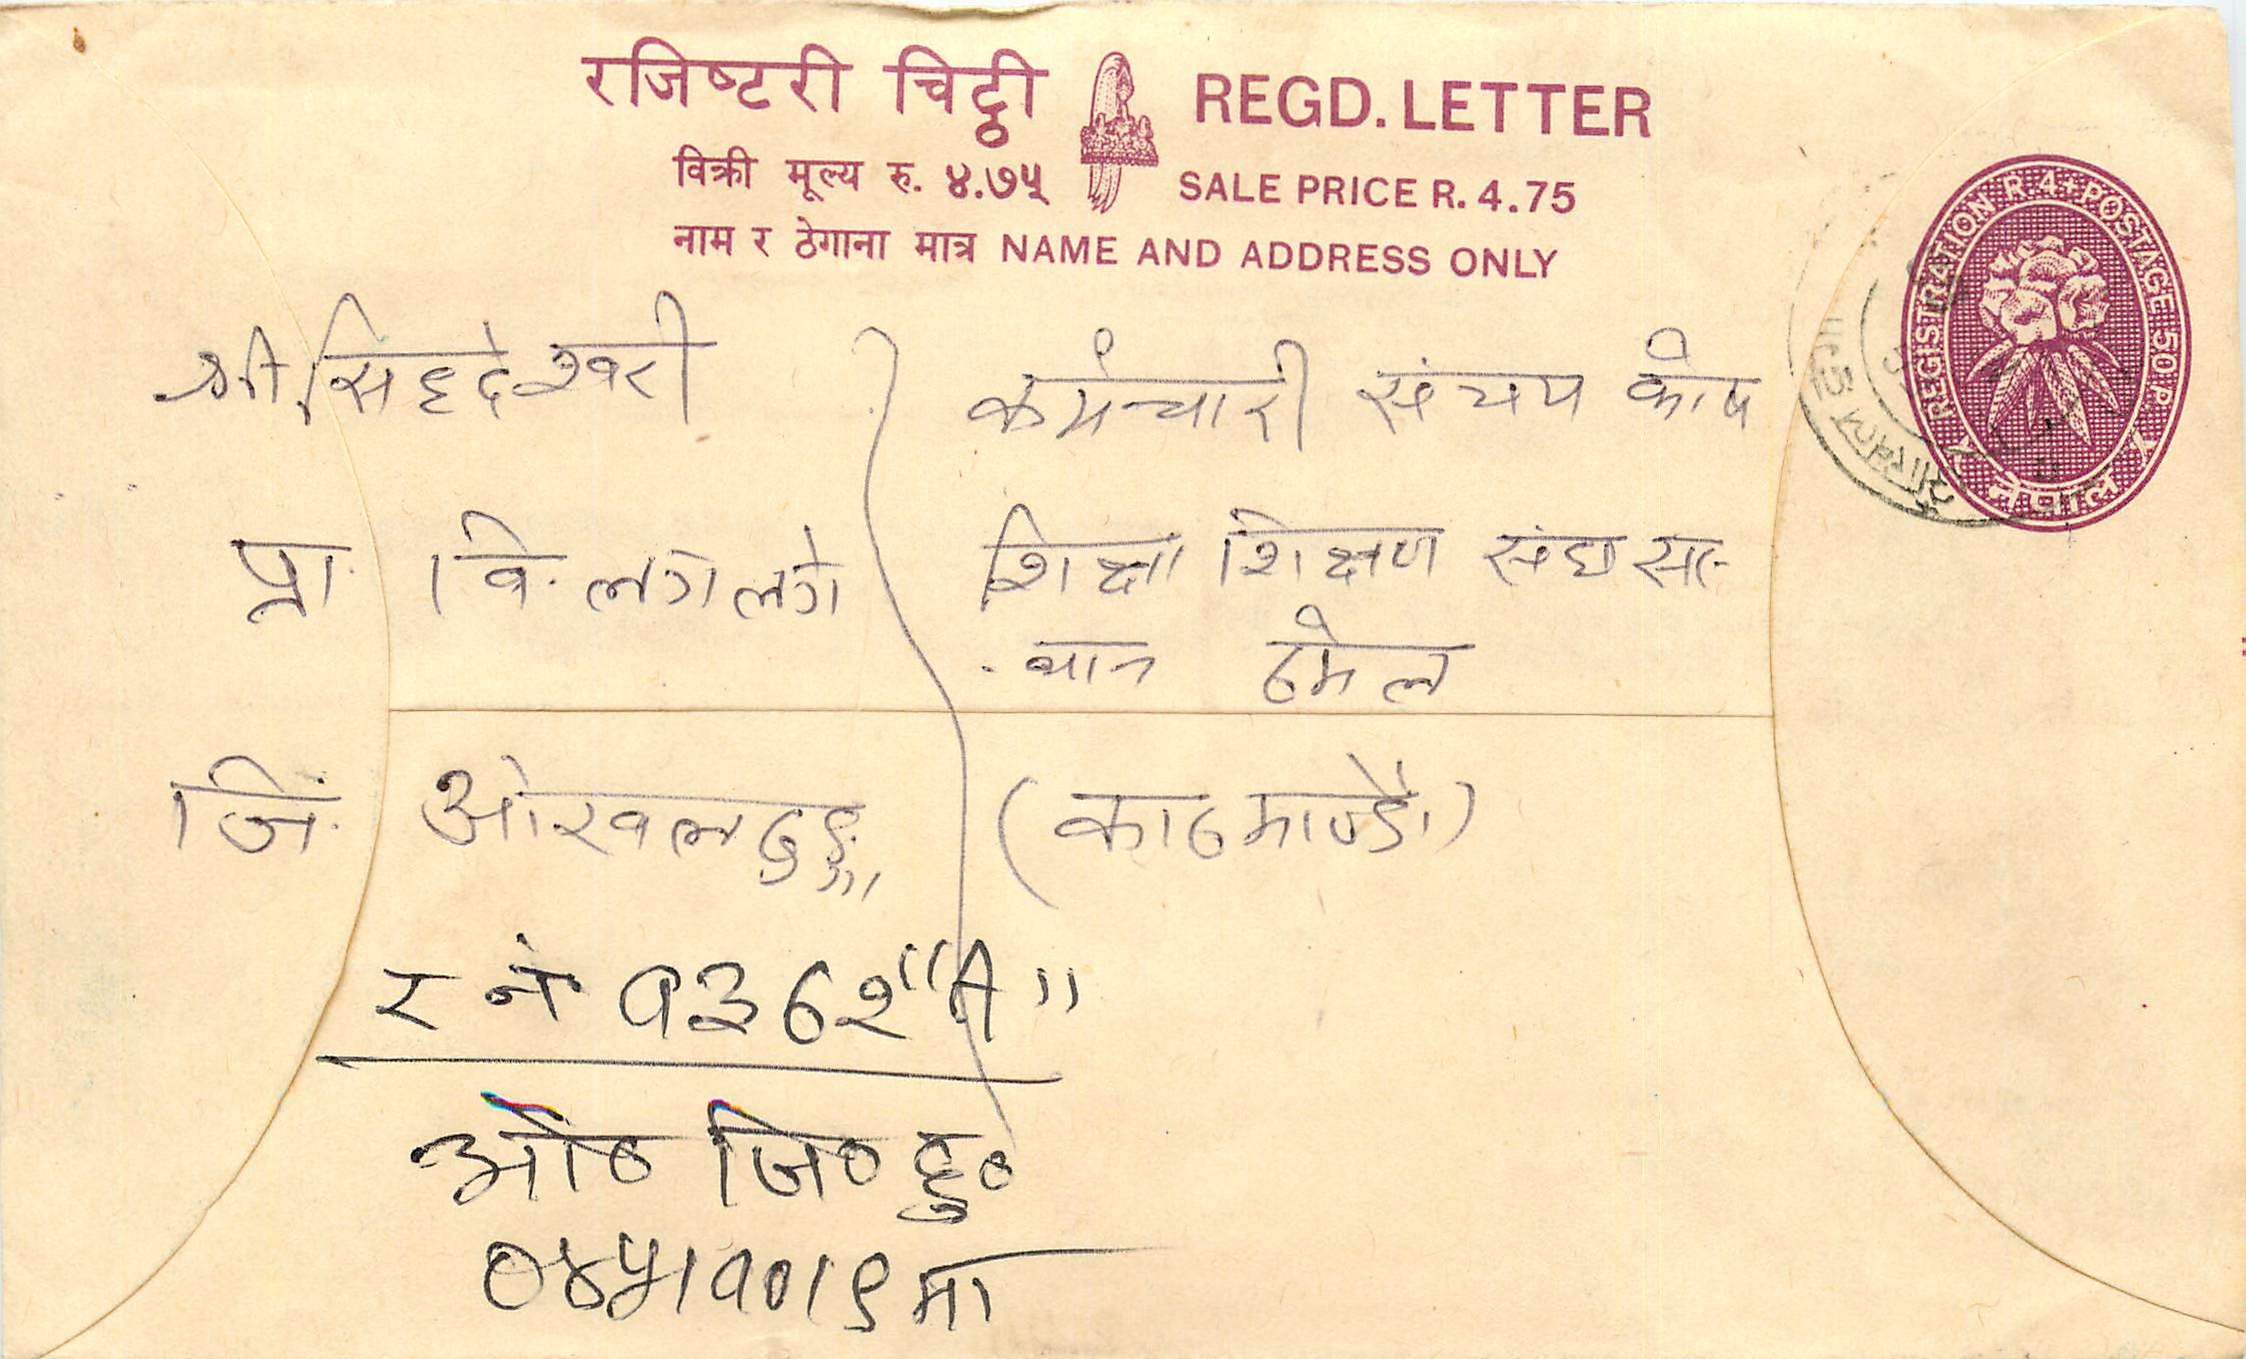 रजिष्टरी चिट्ठी REGD. LETTER
विक्री मूल्य रु. ४.७५ SALE PRICE R. 4.75
नाम र ठेगाना मात्र NAME AND ADDRESS ONLY
REGISTRATION R 4 + POSTAGE 50 P.
नेपाल
श्री सिद्देश्वरी
प्रा. वि. लगलगे
जि. ओखलढुङ्गा
कर्मचारी संचय कोष
शिक्षा शिक्षण संघ सा-
ठमेल
(काठमाण्डौ)
र नं १३६२ "A"
ओ० जि० हु०
०४५।१०।९ मा